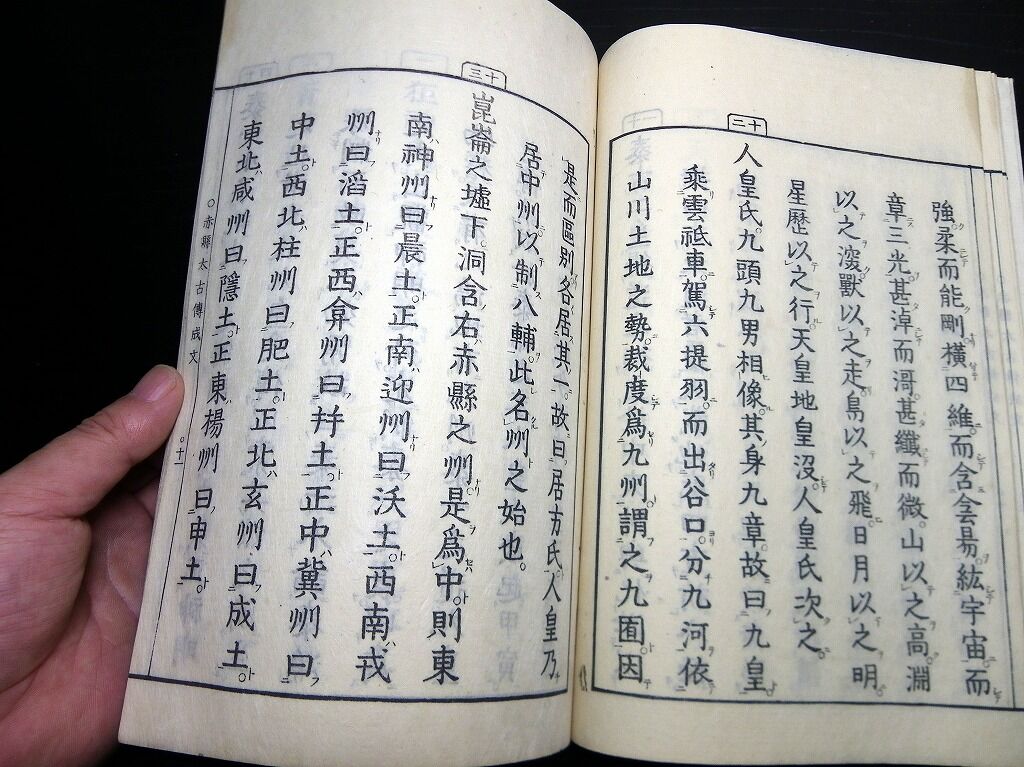 十二
強柔而能剛橫四維而含侌昜紘宇宙而
章三光甚淖而滒甚纖而微山以之高淵
以之深獸以之走鳥以之飛日月以之明
星歷以之行天皇地皇沒人皇氏次之
人皇氏九頭九男相像其身九章故曰九皇
乘雲祗車駕六提羽而出谷口分九河依
山川土地之勢裁度爲九州謂之九囿因
十三
是而區別各居其一故曰居方氏人皇乃
居中州以制八輔此名州之始也。
崑崙之墟下洞含右赤縣之州是爲中則東
南神州曰晨土正南迎州曰沃土西南戎
州曰滔土正西弇州曰幷土正中冀州曰
中土西北柱州曰肥土正北玄州曰成土
東北咸州曰隱土正東楊州曰申土
○赤縣太古傳成文 ○十一